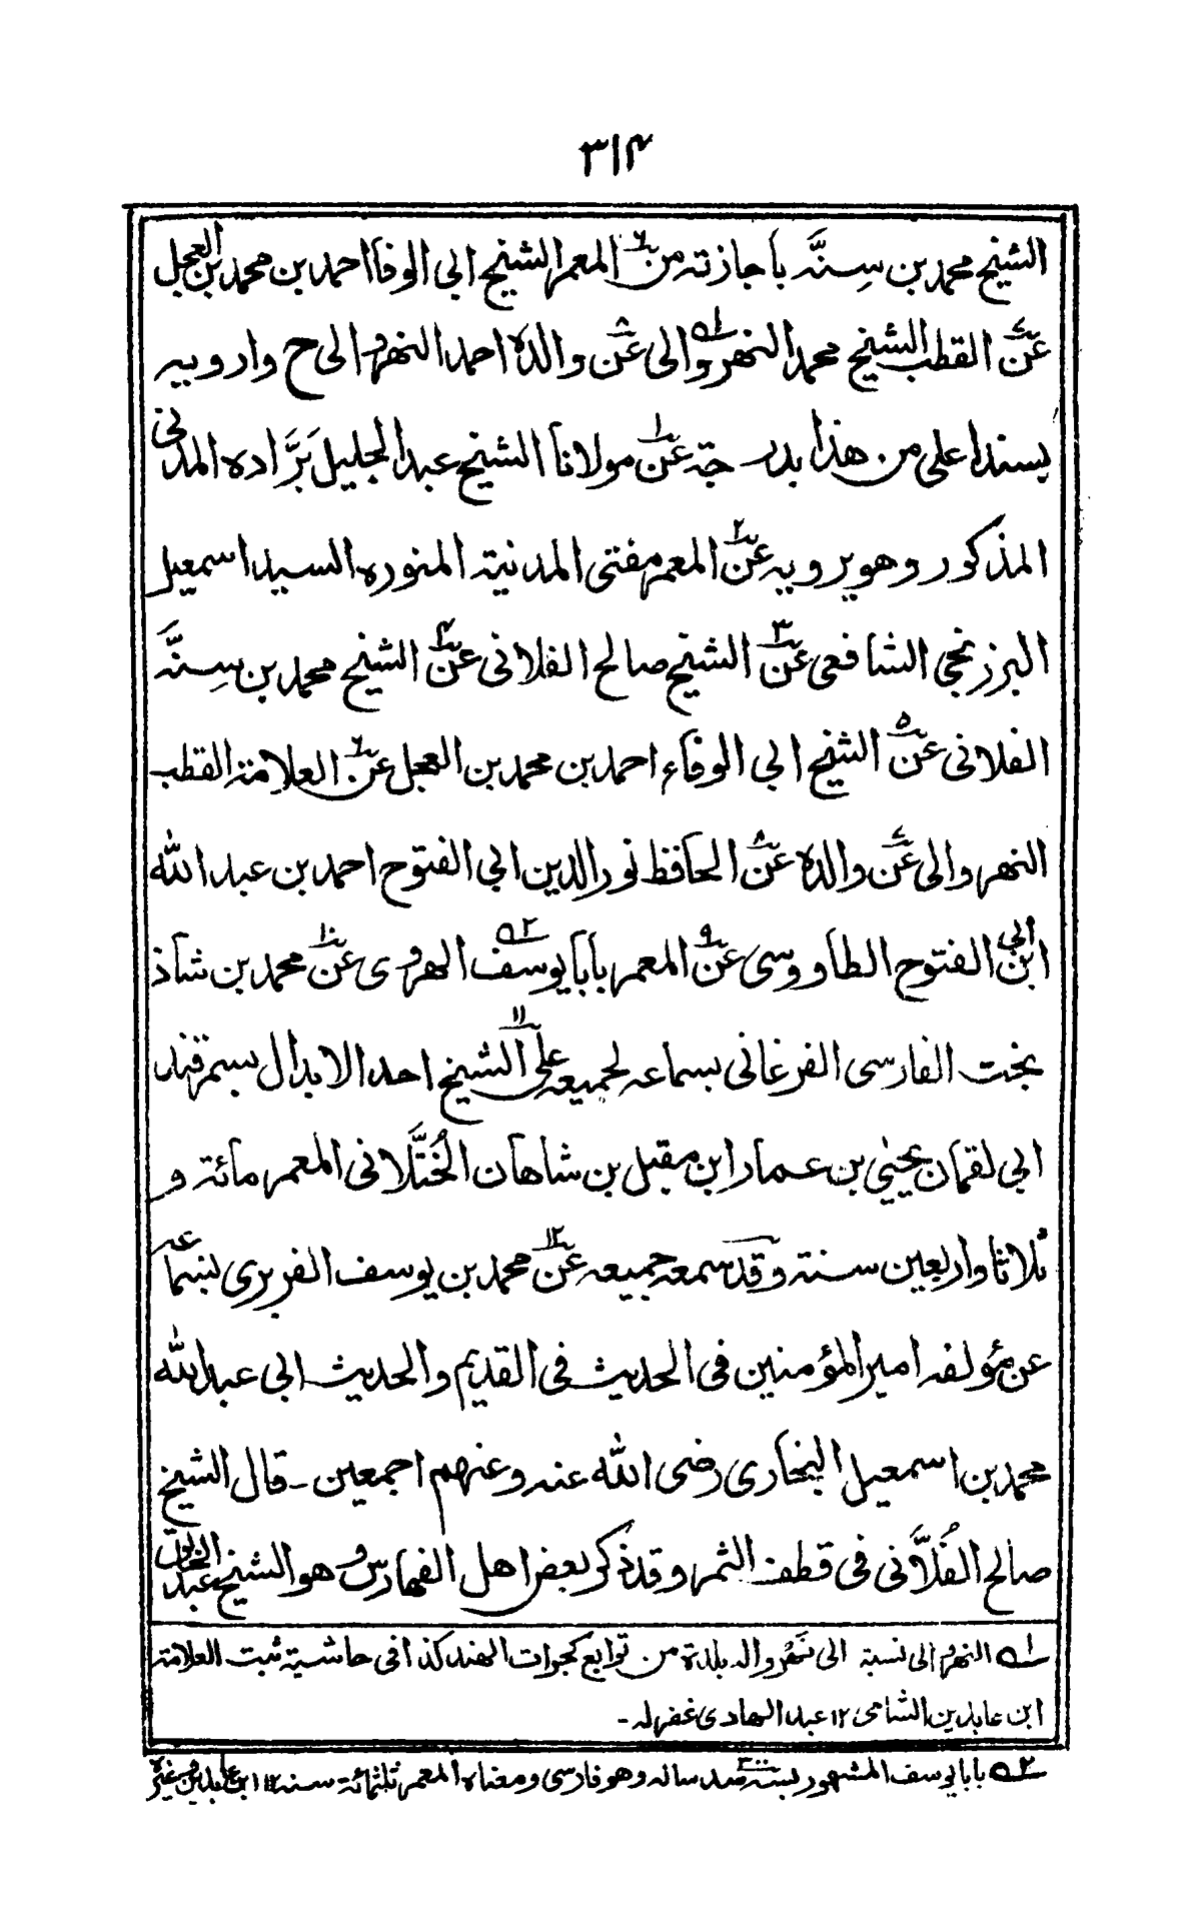 ٣١٤
الشيخ محمد بن سِنَّه باجازته من٦ المعمر الشيخ ابى الوفا احمد بن محمد بن العجل
عن٧ القطب الشيخ محمد النهروالى١ه عن٨ والده احمد النهروالى ح وارويه
بسند اعلى من هذا بدرجة عن١ مولانا الشيخ عبد الجليل بَرَّاده المدنى
المذكور وهو يرويه عن٢ المعمر مفتى المدينة المنوره السيد اسمعيل
البرزنجى الشافعى عن٣ الشيخ صالح الفلانى عن٤ الشيخ محمد بن سِنَّه
الفلانى عن٥ الشيخ ابى الوفاء احمد بن محمد بن العجل عن٦ العلامة القطب
النهروالى عن٧ والده عن٨ الحافظ نور الدين ابى الفتوح احمد بن عبد الله
ابن ابى الفتوح الطاووسى عن٩ المعمر بابا يوسف٢ه الهروى عن١٠ محمد بن شاذ
بخت الفارسى الفرغانى بسماعه لجميعه على١١ الشيخ احد الابدال بسمرقند
ابى لقمان يحيىٰ بن عمار ابن مقبل بن شاهان الخُتَّلانى المعمر مائة و
ثلاثا واربعين سنة وقد سمعه جميعه عن١٢ محمد بن يوسف الفربرى بسماعه
عن مؤلفه امير المؤمنين فى الحديث فى القديم والحديث ابى عبد الله
محمد بن اسمعيل البخارى رضى الله عنه وعنهم اجمعين - قال الشيخ
صالح الفُلَّانى فى قطف الثمر وقد ذكر بعض اهل الفهارس وهو الشيخ عبد الخالق
١ه النهروالى نسبة الى نَهْرواله بلدة من توابع كجرات الهند كذا فى حاشية ثبت العلامة
ابن عابدين الشامى ١٢ عبد الهادى غفرله -
٢ه بابا يوسف المشهور بسه صد ساله وهو فارسى ومعناه المعمر ثلثمائة سنه ١٢ ابن عابدين وغيره